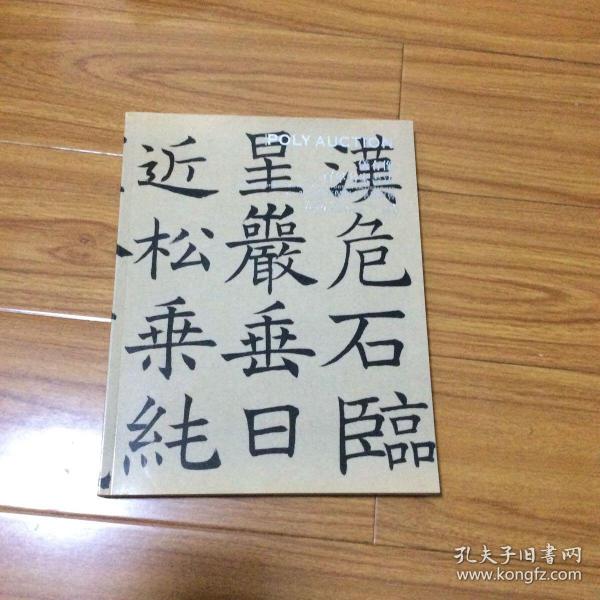 POLY AUCTION
漢危石臨
星嚴垂日
近松乗純
孔夫子旧書网
www.kongfz.com